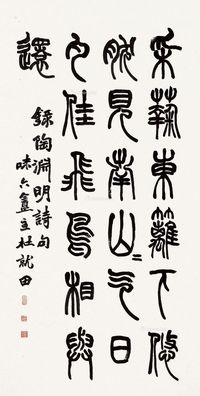 采菊東籬下悠
然見南山〻气日
夕佳飛鳥相與
還
錄陶淵明詩句
味六盦主杜就田